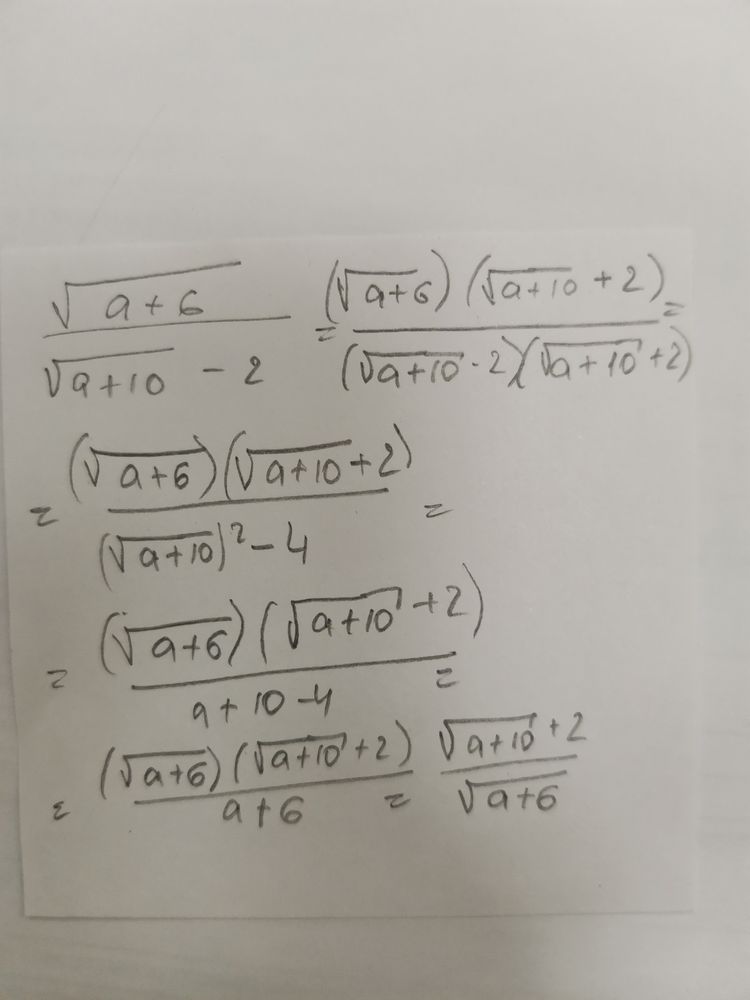 \frac{\sqrt{a+6}}{\sqrt{a+10}-2} = \frac{(\sqrt{a+6})(\sqrt{a+10}+2)}{(\sqrt{a+10}-2)(\sqrt{a+10}+2)} =
= \frac{(\sqrt{a+6})(\sqrt{a+10}+2)}{(\sqrt{a+10})^2-4} =
= \frac{(\sqrt{a+6})(\sqrt{a+10}+2)}{a+10-4} =
= \frac{(\sqrt{a+6})(\sqrt{a+10}+2)}{a+6} = \frac{\sqrt{a+10}+2}{\sqrt{a+6}}